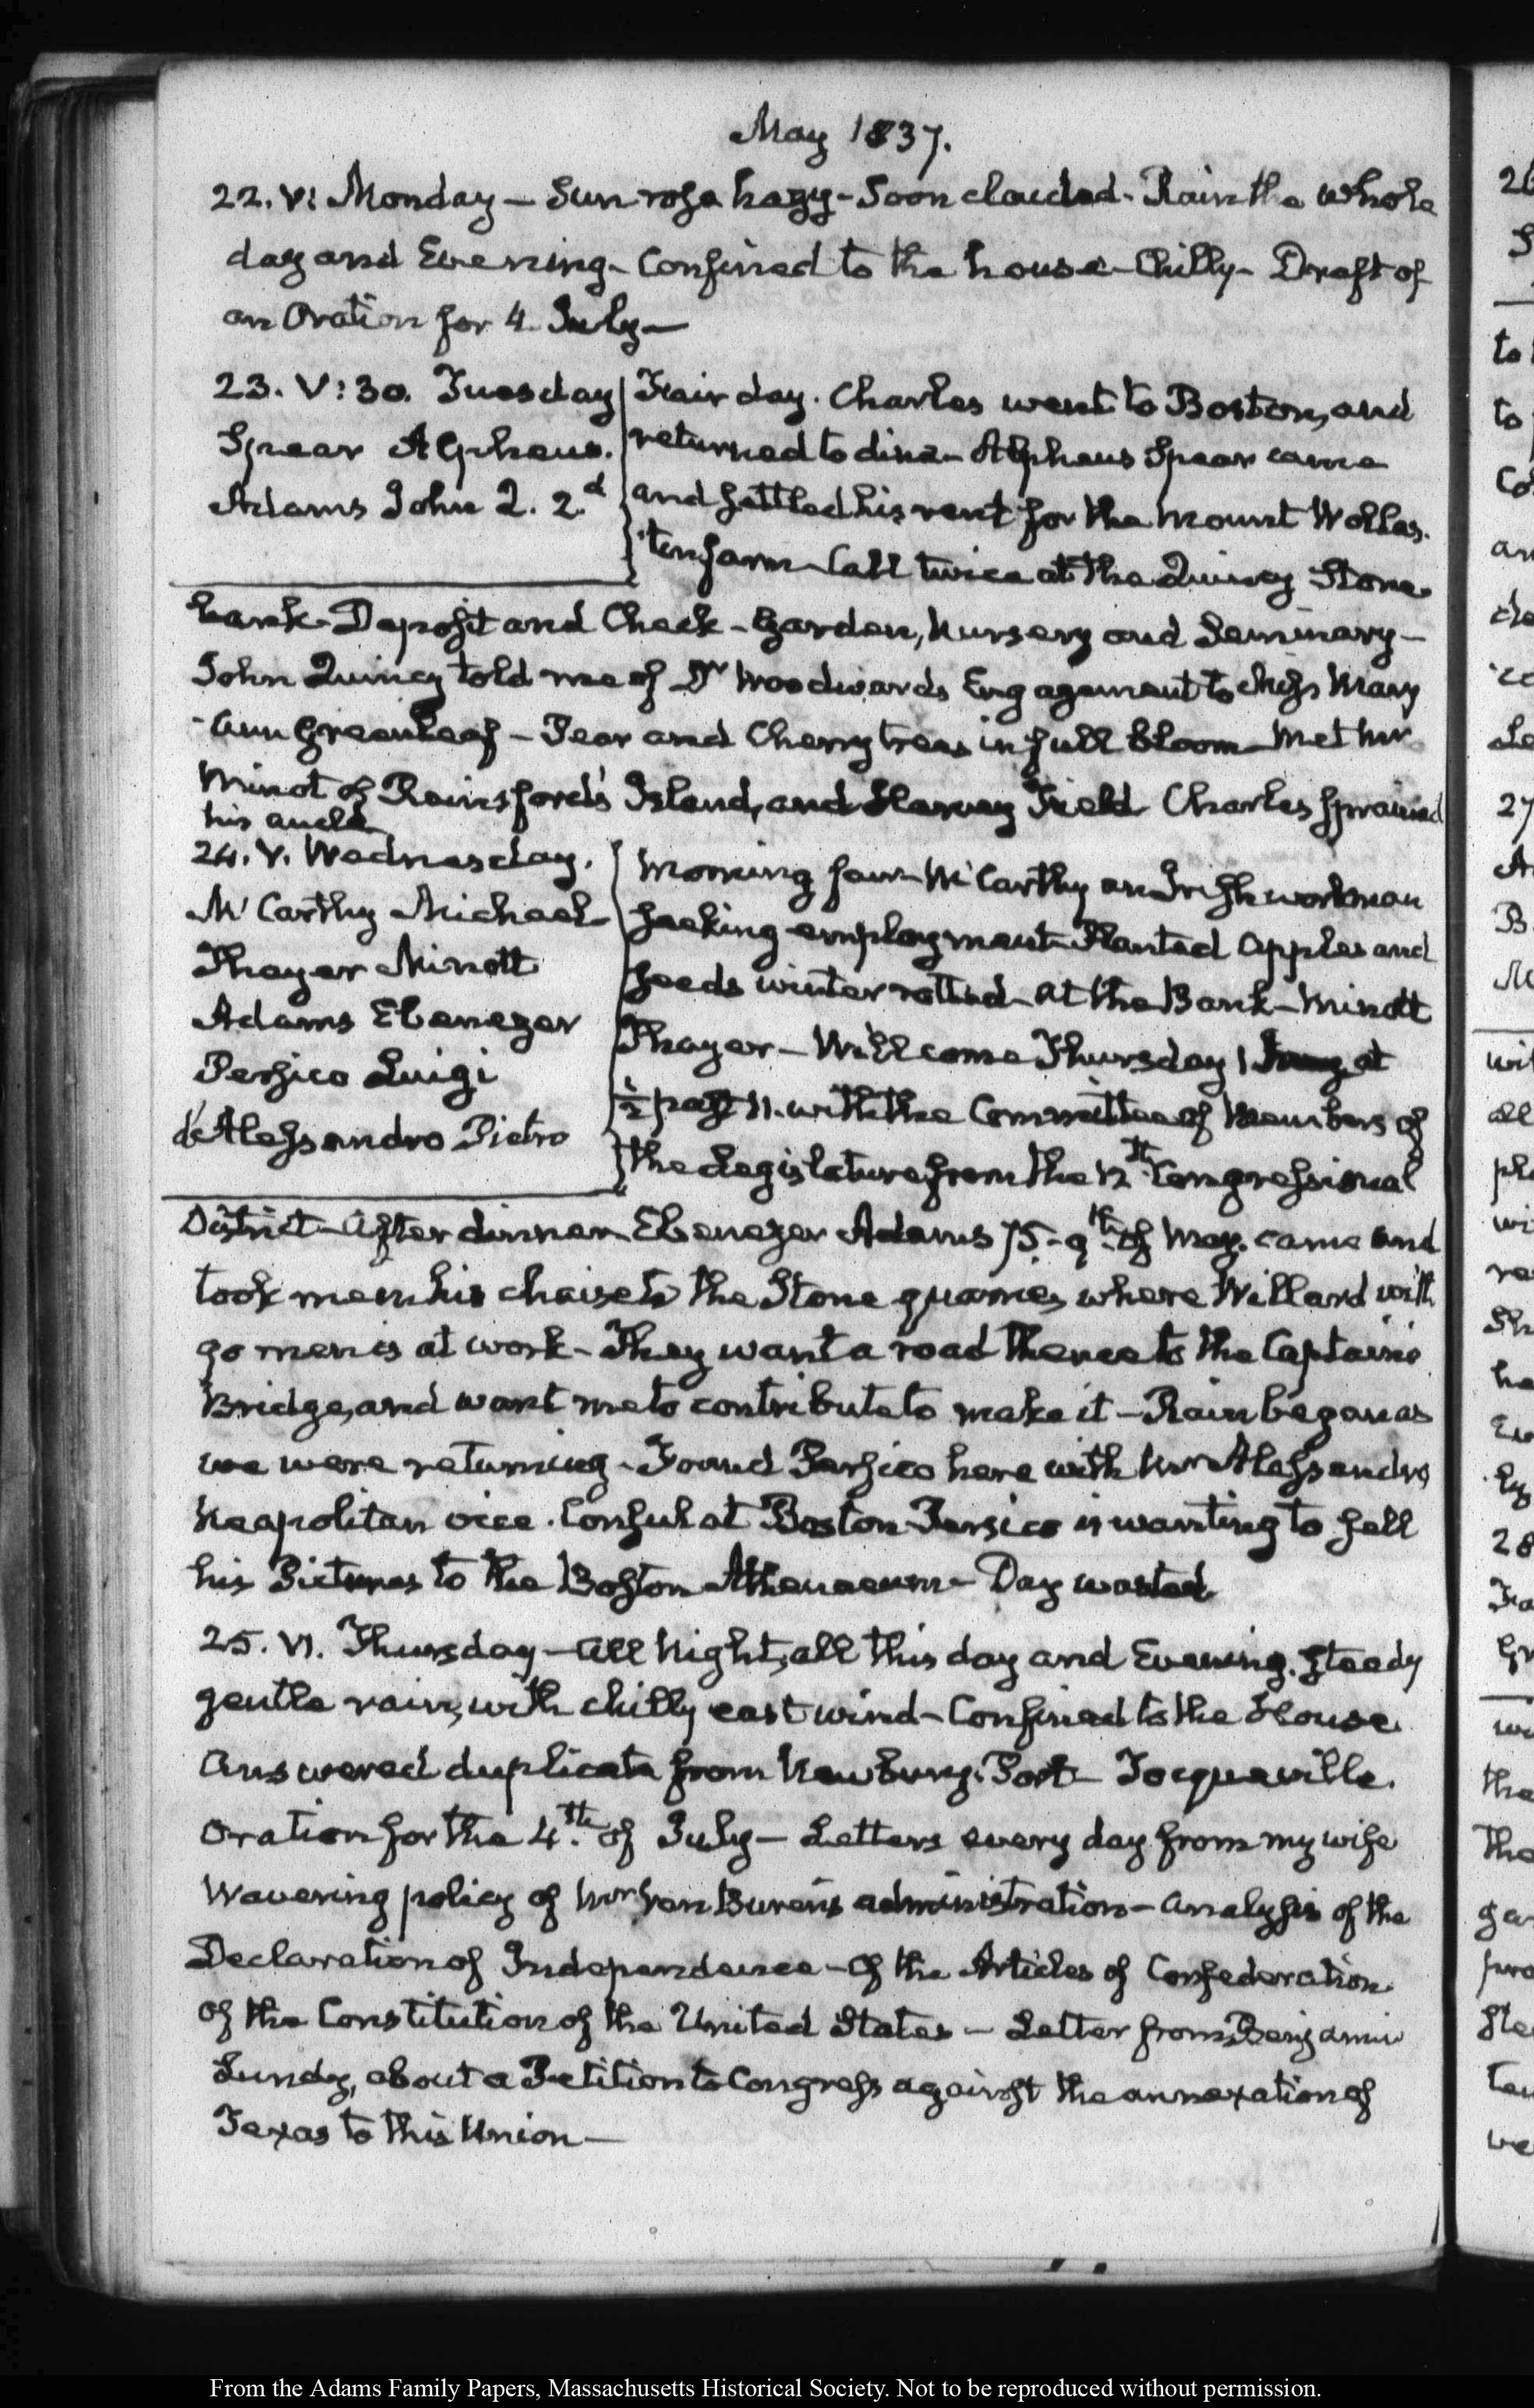 May 1837.
22. V: Monday — Sun rose hazy - Soon clouded - Rain the whole
day and Evening - Confined to the house - Chilly - Draft of
an Oration for 4 July —
23. V:30. Tuesday
Spear Alpheus.
Adams John Q. 2.d
Fair day. Charles went to Boston, and
returned to dine - Alpheus Spear came
and settled his rent for the Mount Wollas-
ton farm - Call twice at the Quincy Stone
bank - Deposit and Check - Garden, Nursery and Seminary -
John Quincy told me of Dr Woodwards Engagement to Miss Mary
Ann Greenleaf - Pear and Cherry trees in full bloom - Met Mr
Minot of Rainsford's Island, and Harvey Field Charles sprained
his ancle
24. V. Wednesday.
McCarthy Michael
Thayer Minott
Adams Ebenezer
Persico Luigi
d'Alessandro Pietro
Morning fair - McCarthy an Irish workman
seeking employment - Planted apples and
seeds winter rotted - at the Bank - Minott
Thayer - Will come Thursday 1 at
½ past 11. with the Committee of Members of
the Legislature from the 12th Congressional
District - After dinner Ebenezer Adams 75 - 9th of May. came and
took me in his chaise to the Stone quarries where Willard with
90 men is at work - They want a road thence to the Captains
Bridge, and want me to contribute to make it - Rain began as
we were returning - Found Persico here with Mr Alessandro
Neapolitan vice-Consul at Boston Persico is wanting to sell
his Pictures to the Boston Athenaeum - Day wasted
25. VI. Thursday - All Night, all this day and Evening. steady
gentle rain, with chilly east wind - Confined to the House
Answered duplicate from Newbury-Port - Tocqueville.
Oration for the 4th of July - Letters every day from my wife
Wavering policy of Mr Van Buren's administration - Analysis of the
Declaration of Independence - Of the Articles of Confederation
of the Constitution of the United States - Letter from Benjamin
Lundy, about a Petition to Congress against the annexation of
Texas to this Union —
From the Adams Family Papers, Massachusetts Historical Society. Not to be reproduced without permission.